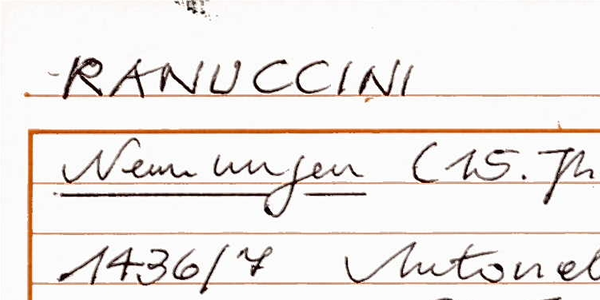 RANUCCINI
Nennungen (15. Jh
1436/7 Antonel